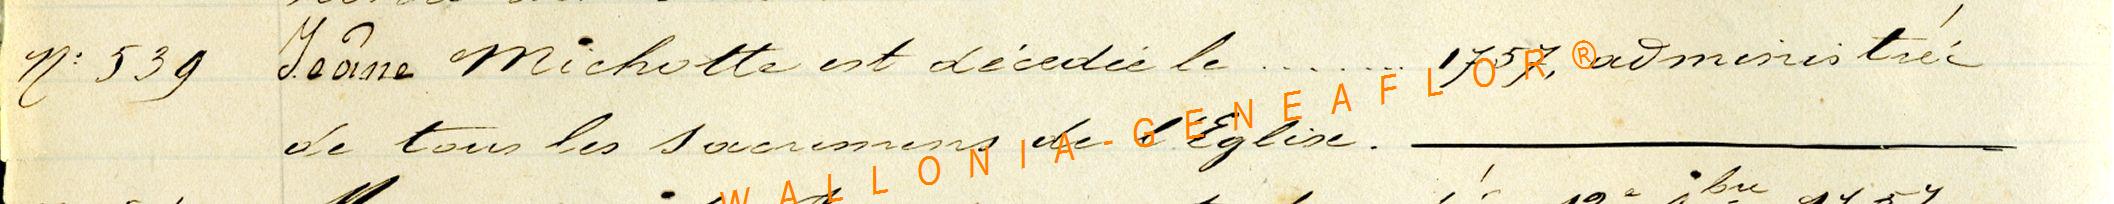 N: 539 Jeâne Michotte est décedée le ........ 1757, administrée
de tous les sacremens de l'Eglise.
WALLONIA-GENEAFLOR®
1757